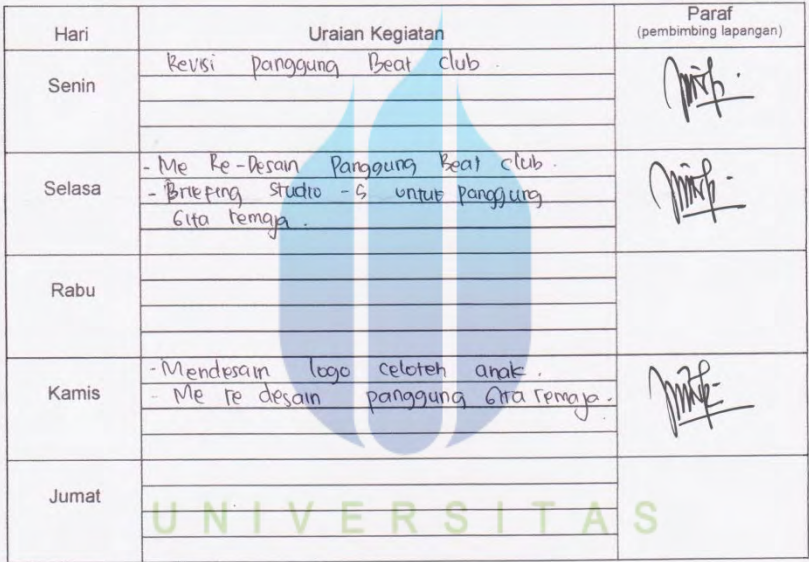 Hari Uraian Kegiatan Paraf
(pembimbing lapangan)
Senin
Revisi panggung Beat club.
Selasa
- Me Re-Desain Panggung Beat club.
- Briefing Studio -5 untuk panggung
Gita remaja.
Rabu
Kamis
- Mendesain logo celoteh anak.
- Me re desain panggung Gita remaja.
Jumat
UNIVERSITAS